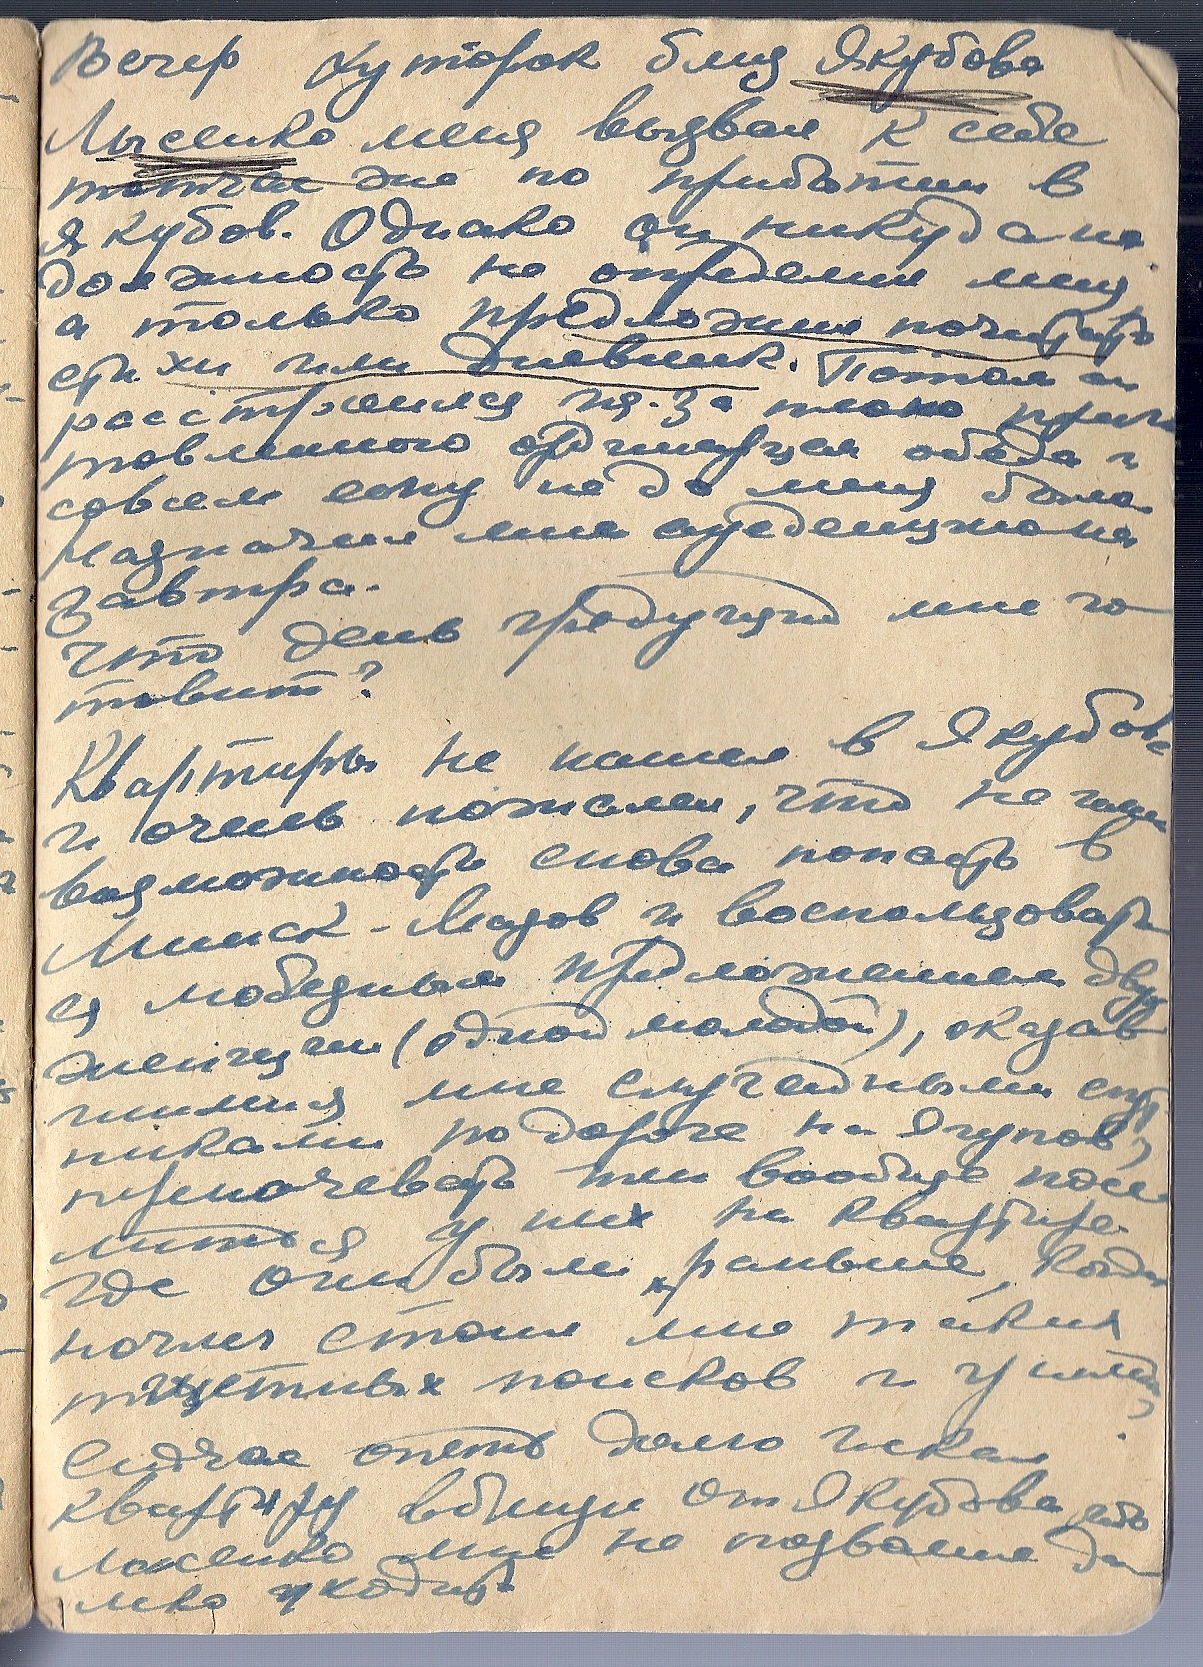 Вечер хуторок близ Якубова
Лысенко меня вызвал к себе
тотчас же по прибытии в
Якубов. Однако он никуда на
должность не определил меня
а только предложил почитать
стихи или дневник. Потом он
расстроился из-за плохо приго
товленного ординарцем обеда и
совсем ему не до меня было.
Назначил мне аудиенцию на
завтра.
Что день грядущий мне го
товит?
Квартиры не нашел в Якубове
и очень пожалел, что не имел
возможность снова попасть в
Минск-Мазов и воспользовать
ся любезным предложением двух
женщин (одной молодой), оказав
шимися мне случайными спут
никами по дороге на Якубов,
переночевать или вообще посе
литься у них на квартире.
Где они были раньше, когда
ночлег стоил мне таких
тщетных поисков и усилий?
Сейчас опять долго искал
квартиру вблизи от Якубова ибо
Лысенко мне не позволил да
леко уходить.